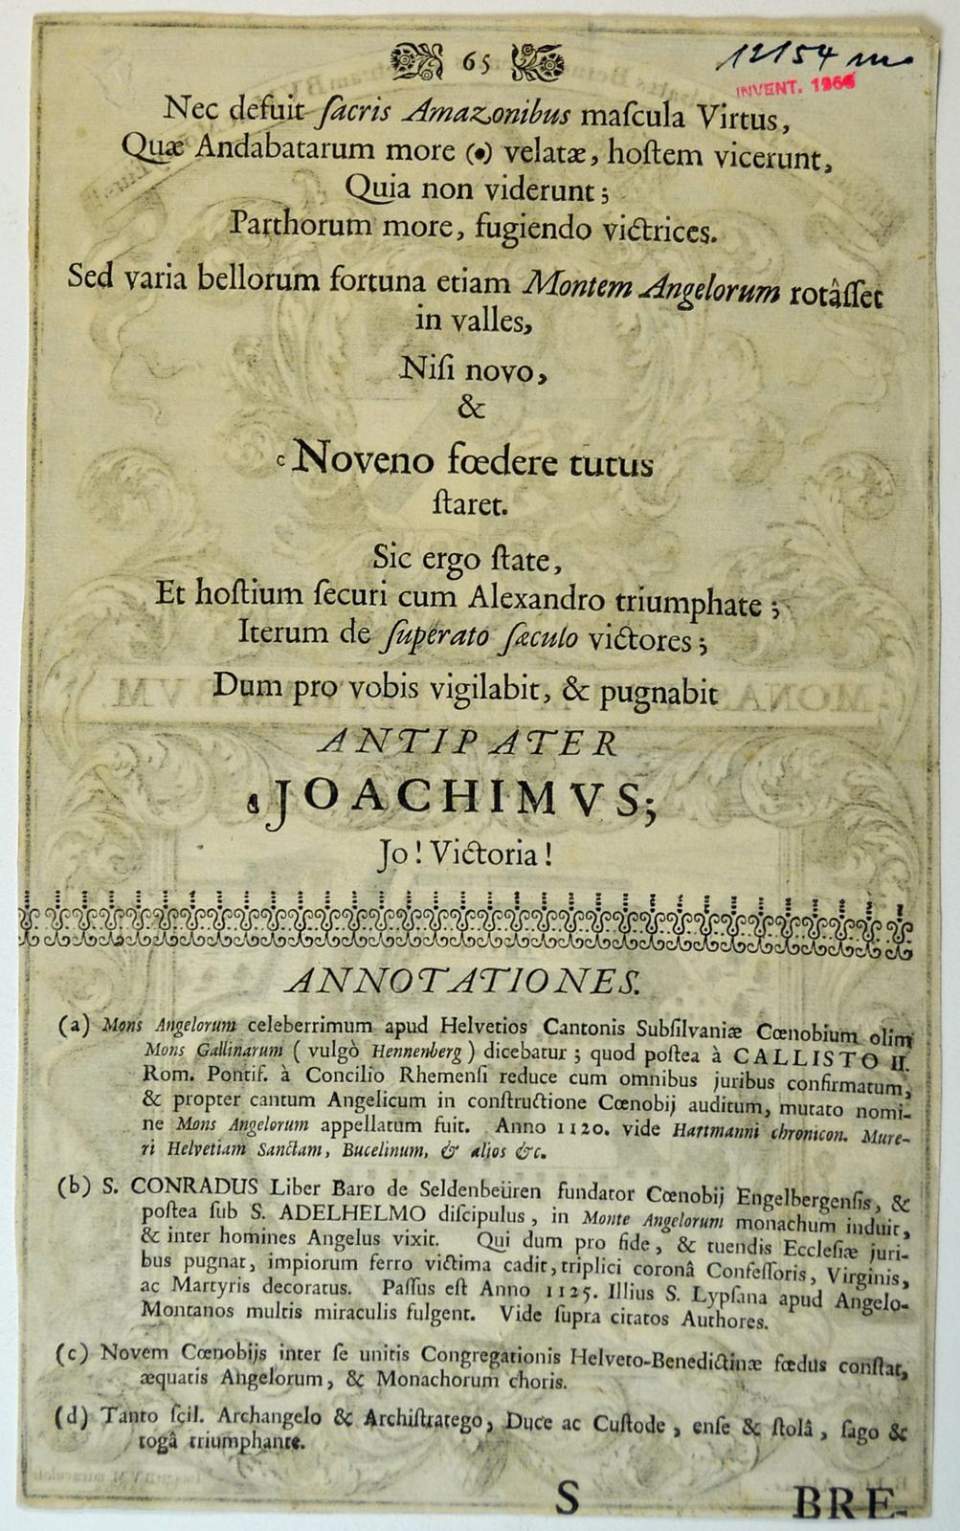 65
12154 m
INVENT. 1966
Nec defuit ſacris Amazonibus maſcula Virtus,
Quæ Andabatarum more (•) velatæ, hoſtem vicerunt,
Quia non viderunt;
Parthorum more, fugiendo victrices.
Sed varia bellorum fortuna etiam Montem Angelorum rotâſſet
in valles,
Niſi novo,
&
c Noveno fœdere tutus
ſtaret.
Sic ergo ſtate,
Et hoſtium ſecuri cum Alexandro triumphate;
Iterum de ſuperato ſæculo victores;
Dum pro vobis vigilabit, & pugnabit
ANTIPATER
d JOACHIMVS;
Jo! Victoria!
ANNOTATIONES.
(a) Mons Angelorum celeberrimum apud Helvetios Cantonis Subſilvaniæ Cœnobium olim
Mons Gallinarum ( vulgò Hennenberg ) dicebatur; quod poſtea à CALLISTO II.
Rom. Pontif. à Concilio Rhemenſi reduce cum omnibus juribus confirmatum,
& propter cantum Angelicum in conſtructione Cœnobij auditum, mutato nomi-
ne Mons Angelorum appellatum fuit. Anno 1120. vide Hartmanni chronicon. Mure-
ri Helvetiam Sanctam, Bucelinum, & alios &c.
(b) S. CONRADUS Liber Baro de Seldenbeüren fundator Cœnobij Engelbergenſis, &
poſtea ſub S. ADELHELMO diſcipulus, in Monte Angelorum monachum induit,
& inter homines Angelus vixit. Qui dum pro fide, & tuendis Eccleſiæ juri-
bus pugnat, impiorum ferro victima cadit, triplici coronâ Confeſſoris, Virginis,
ac Martyris decoratus. Paſſus eſt Anno 1125. Illius S. Lypſana apud Angelo-
Montanos multis miraculis fulgent. Vide ſupra citatos Authores.
(c) Novem Cœnobijs inter ſe unitis Congregationis Helveto-Benedictinæ fœdus conſtat,
æquatis Angelorum, & Monachorum choris.
(d) Tanto ſcil. Archangelo & Archiſtratego, Duce ac Cuſtode, enſe & ſtolâ, ſago &
togâ triumphante.
S BRE-